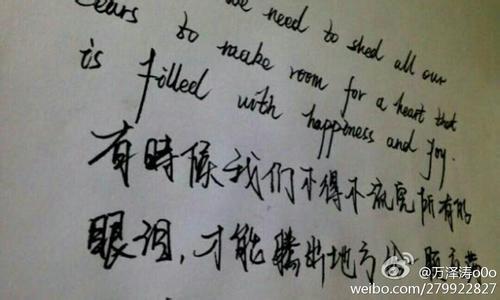 we need to shed all our
tears to make room for a heart that
is filled with happiness and joy.
有時候我们不得不流完所有的
眼泪,才能腾出地方给一颗
@万泽涛o0o
weibo.com/279922827